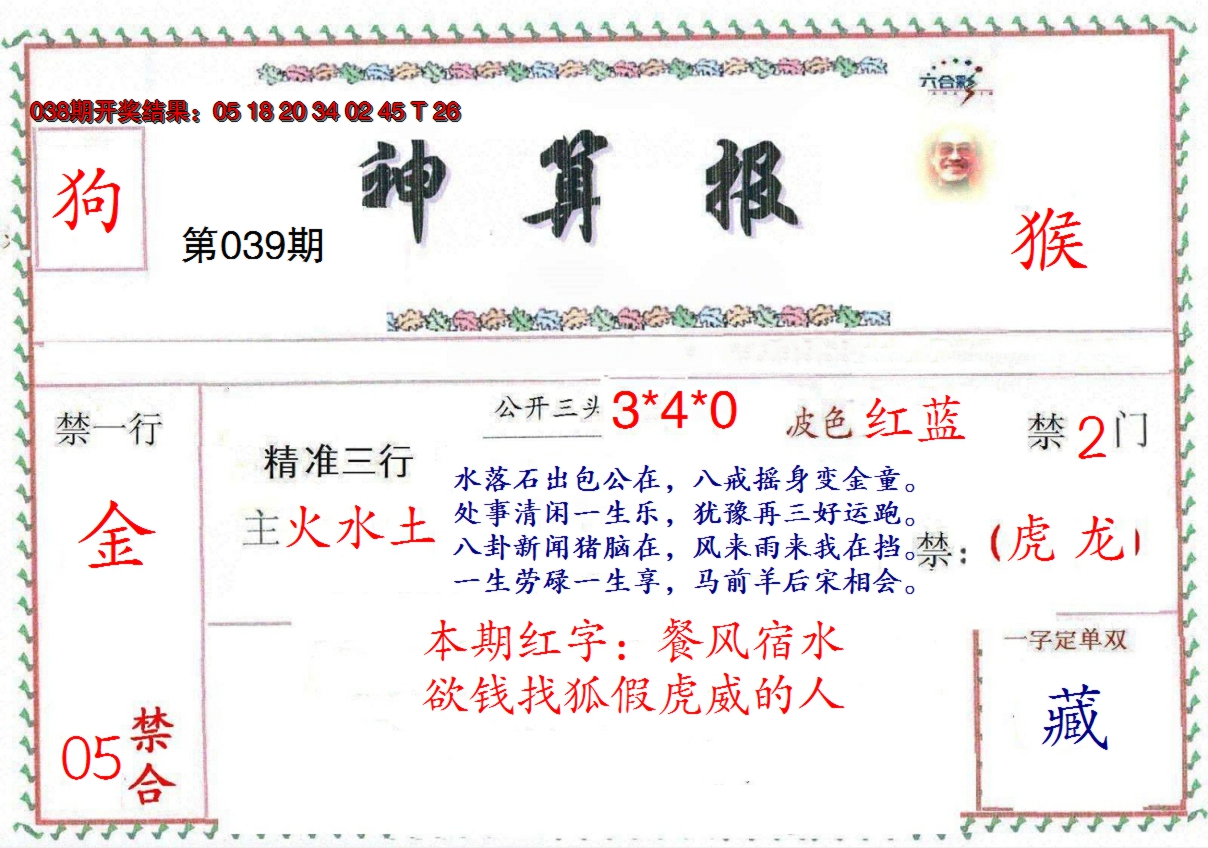 六合彩
038期开奖结果：05 18 20 34 02 45 T 26
神算报
狗
第039期
猴
禁一行
金
05
禁合
精准三行
主火水土
公开三头 3*4*0
波色 红蓝
水落石出包公在，八戒摇身变金童。
处事清闲一生乐，犹豫再三好运跑。
八卦新闻猪脑在，风来雨来我在挡。
一生劳碌一生享，马前羊后宋相会。
禁2门
禁：（虎 龙）
本期红字：餐风宿水
欲钱找狐假虎威的人
一字定单双
藏